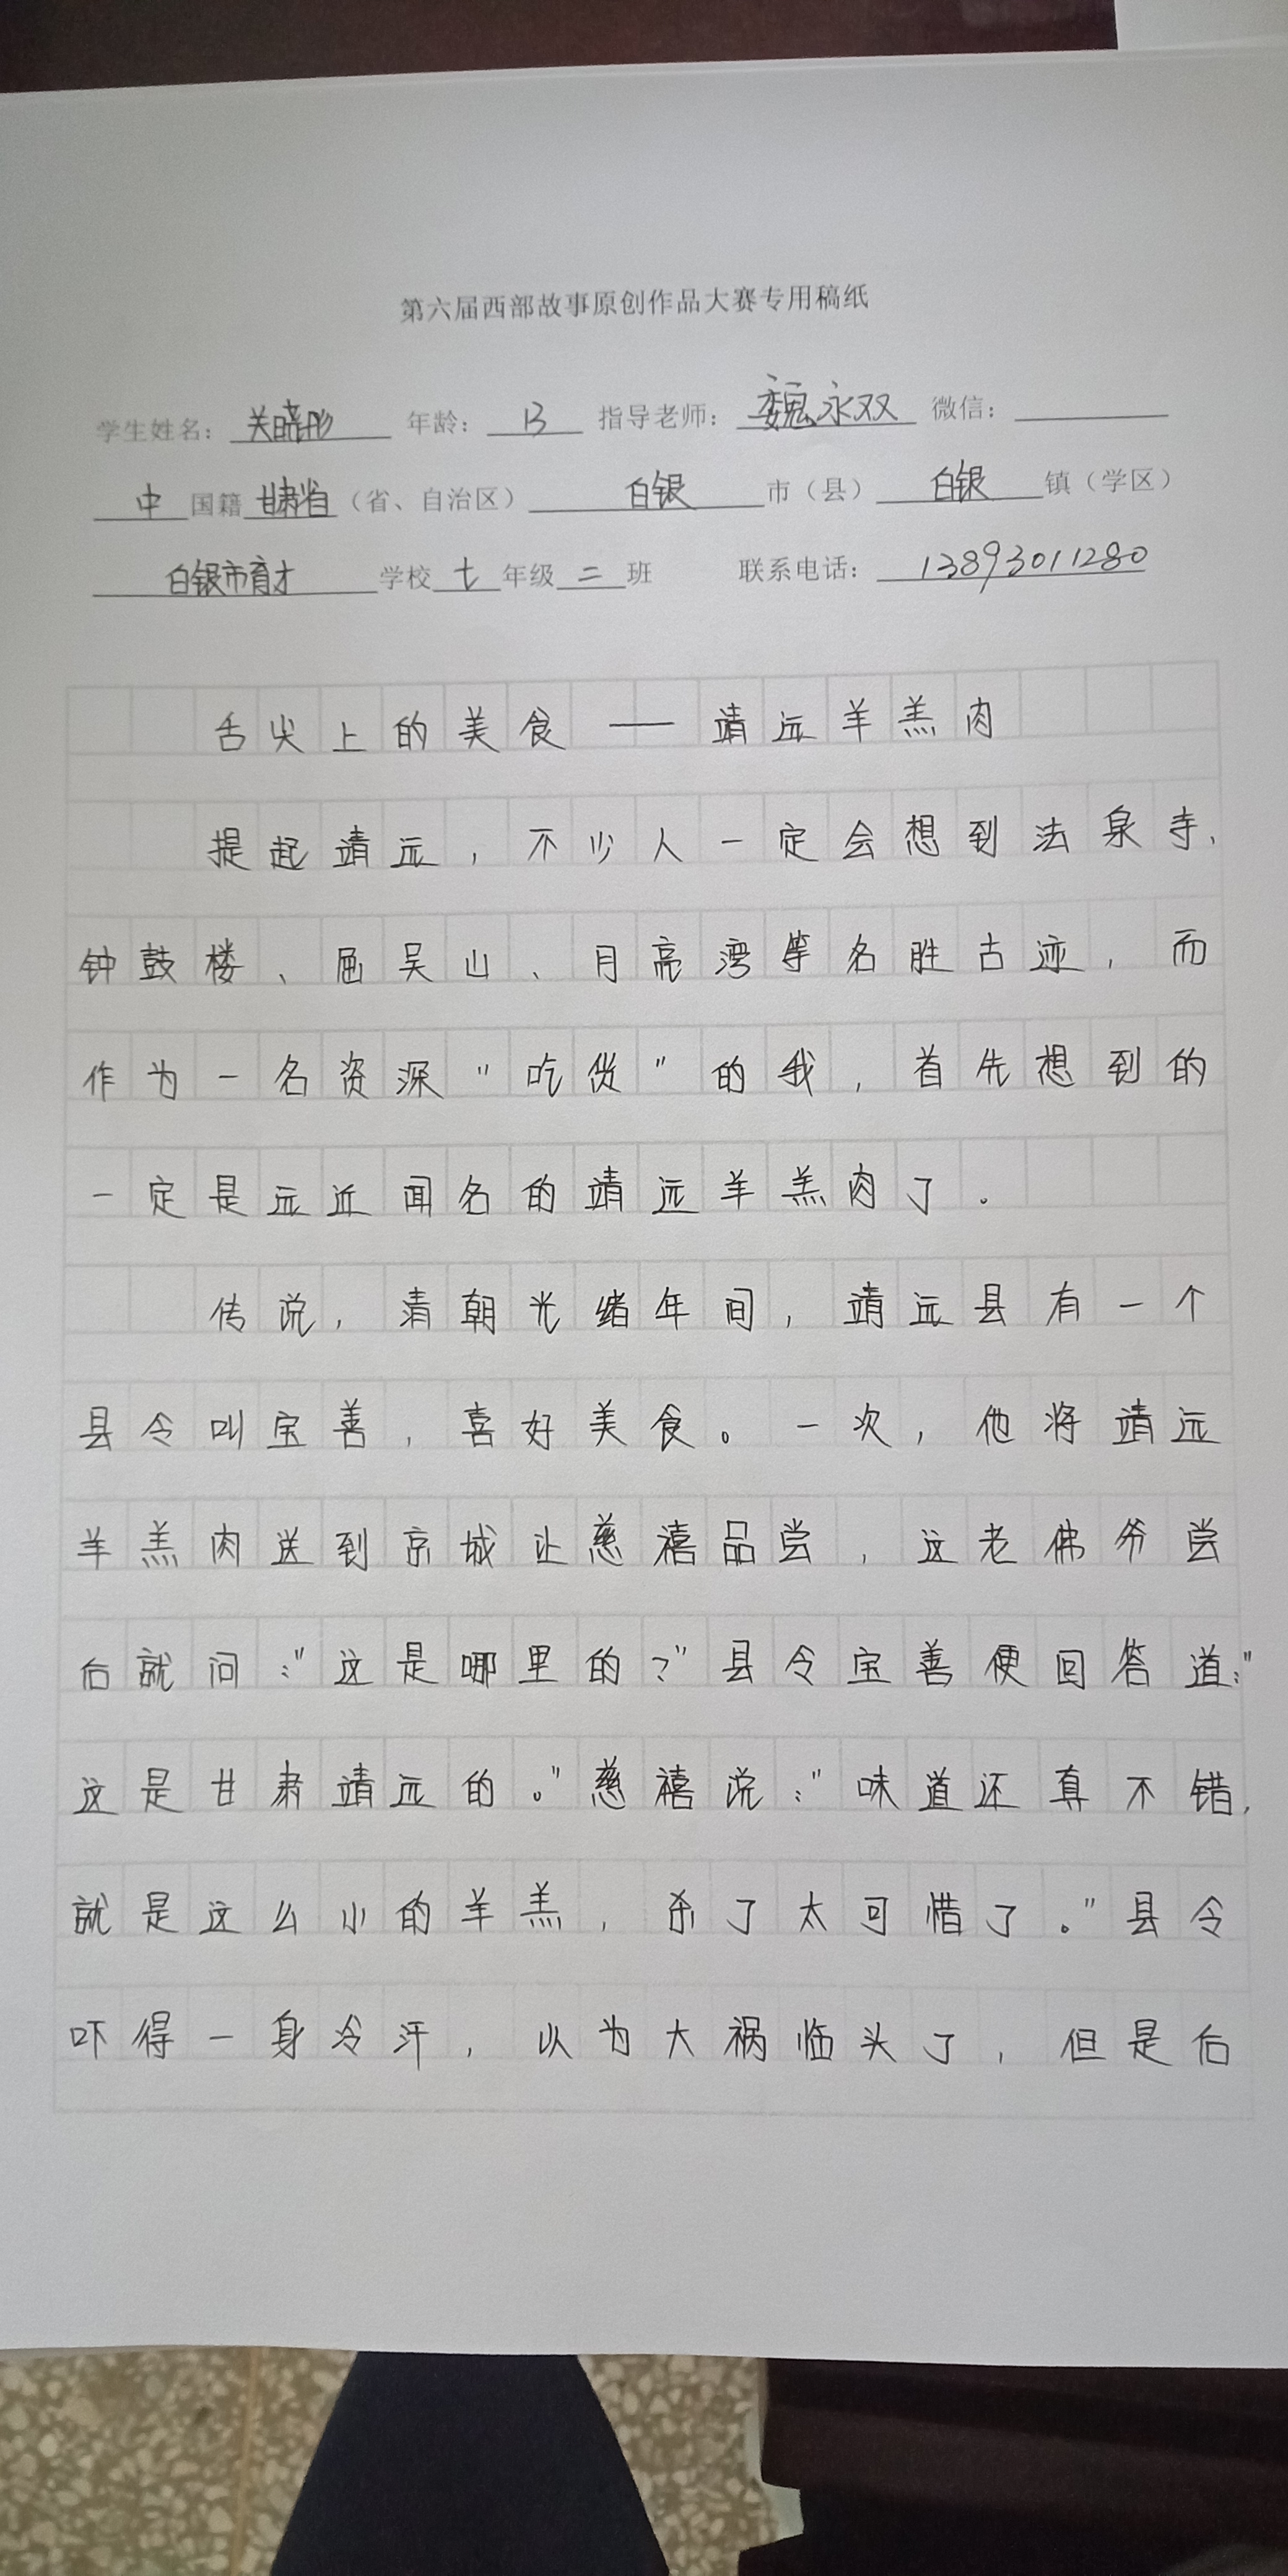 第六届西部故事原创作品大赛专用稿纸
学生姓名：关晓彤 年龄：13 指导老师：魏永双 微信：
中国籍甘肃省（省、自治区）白银市（县）白银镇（学区）
白银市育才学校七年级二班 联系电话：13893011280
舌尖上的美食——靖远羊羔肉
提起靖远，不少人一定会想到法泉寺、
钟鼓楼、屈吴山、月亮湾等名胜古迹，而
作为一名资深“吃货”的我，首先想到的
一定是远近闻名的靖远羊羔肉了。
传说，清朝光绪年间，靖远县有一个
县令叫宝善，喜好美食。一次，他将靖远
羊羔肉送到京城让慈禧品尝，这老佛爷尝
后就问：“这是哪里的？”县令宝善便回答道：“
这是甘肃靖远的。”慈禧说：“味道还真不错，
就是这么小的羊羔，杀了太可惜了。”县令
吓得一身冷汗，以为大祸临头了，但是后